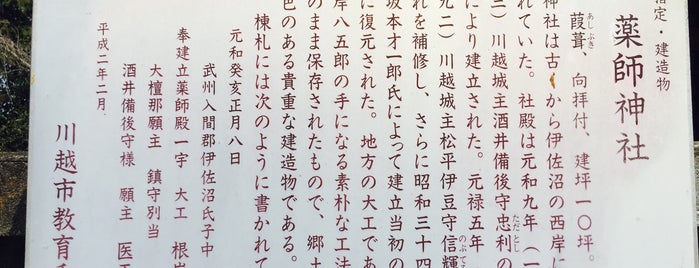 指定・建造物
薬師神社
葭葺、向拝付、建坪一〇坪。
あしぶき
神社は古くから伊佐沼の西岸に
れていた。社殿は元和九年（一
三）川越城主酒井備後守忠利の
ただとし
により建立された。元禄五年
九二）川越城主松平伊豆守信輝
のぶてる
れを補修し、さらに昭和三十四
坂本才一郎氏によって建立当初の
に復元された。地方の大工であ
岸八五郎の手になる素朴な工法
のまま保存されたもので、郷土
色のある貴重な建造物である。
棟札には次のように書かれて
元和癸亥正月八日
武州入間郡伊佐沼氏子中
奉建立薬師殿一宇 大工 根岸
大檀那願主 鎮守別当
酒井備後守様 願主 医王
平成二年二月
川越市教育